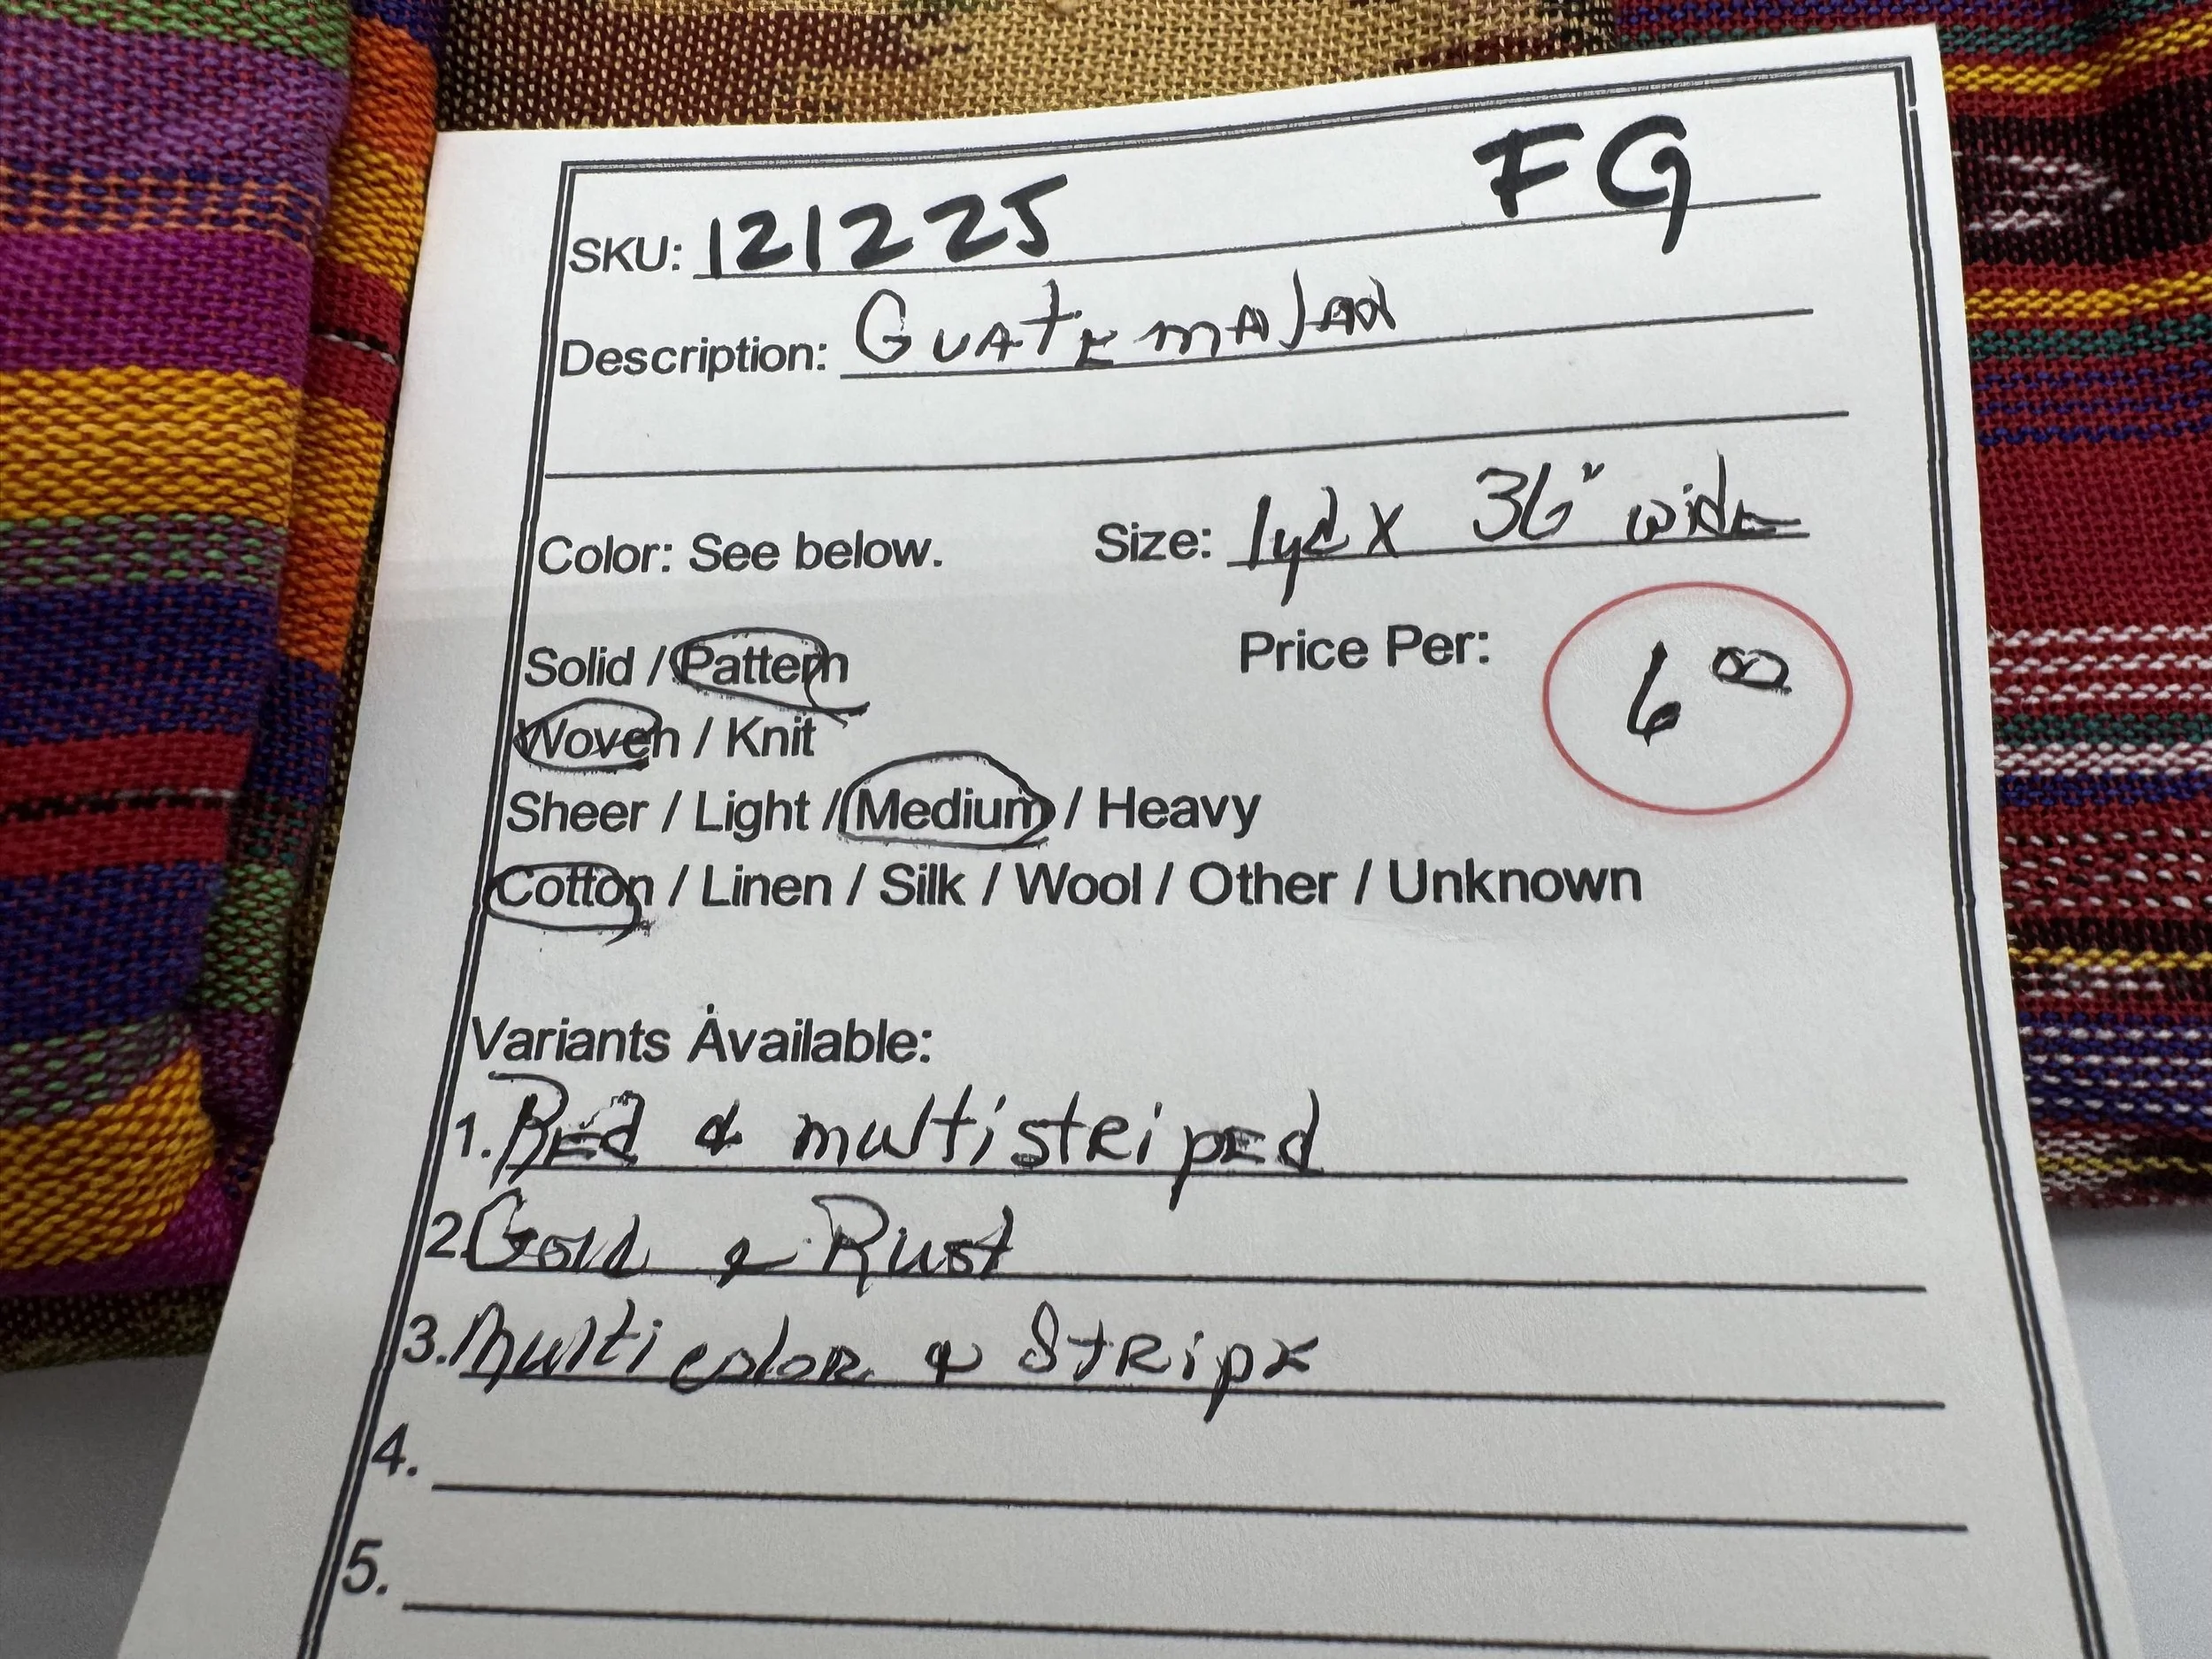 SKU: 121225 FG
Description: Guatemalan
Color: See below. Size: 1yd x 36" wide
Solid / Pattern Price Per: 6 00
Woven / Knit
Sheer / Light / Medium / Heavy
Cotton / Linen / Silk / Wool / Other / Unknown
Variants Available:
1. Red & multistriped
2. Gold & Rust
3. Multi color & Stripe
4.
5.